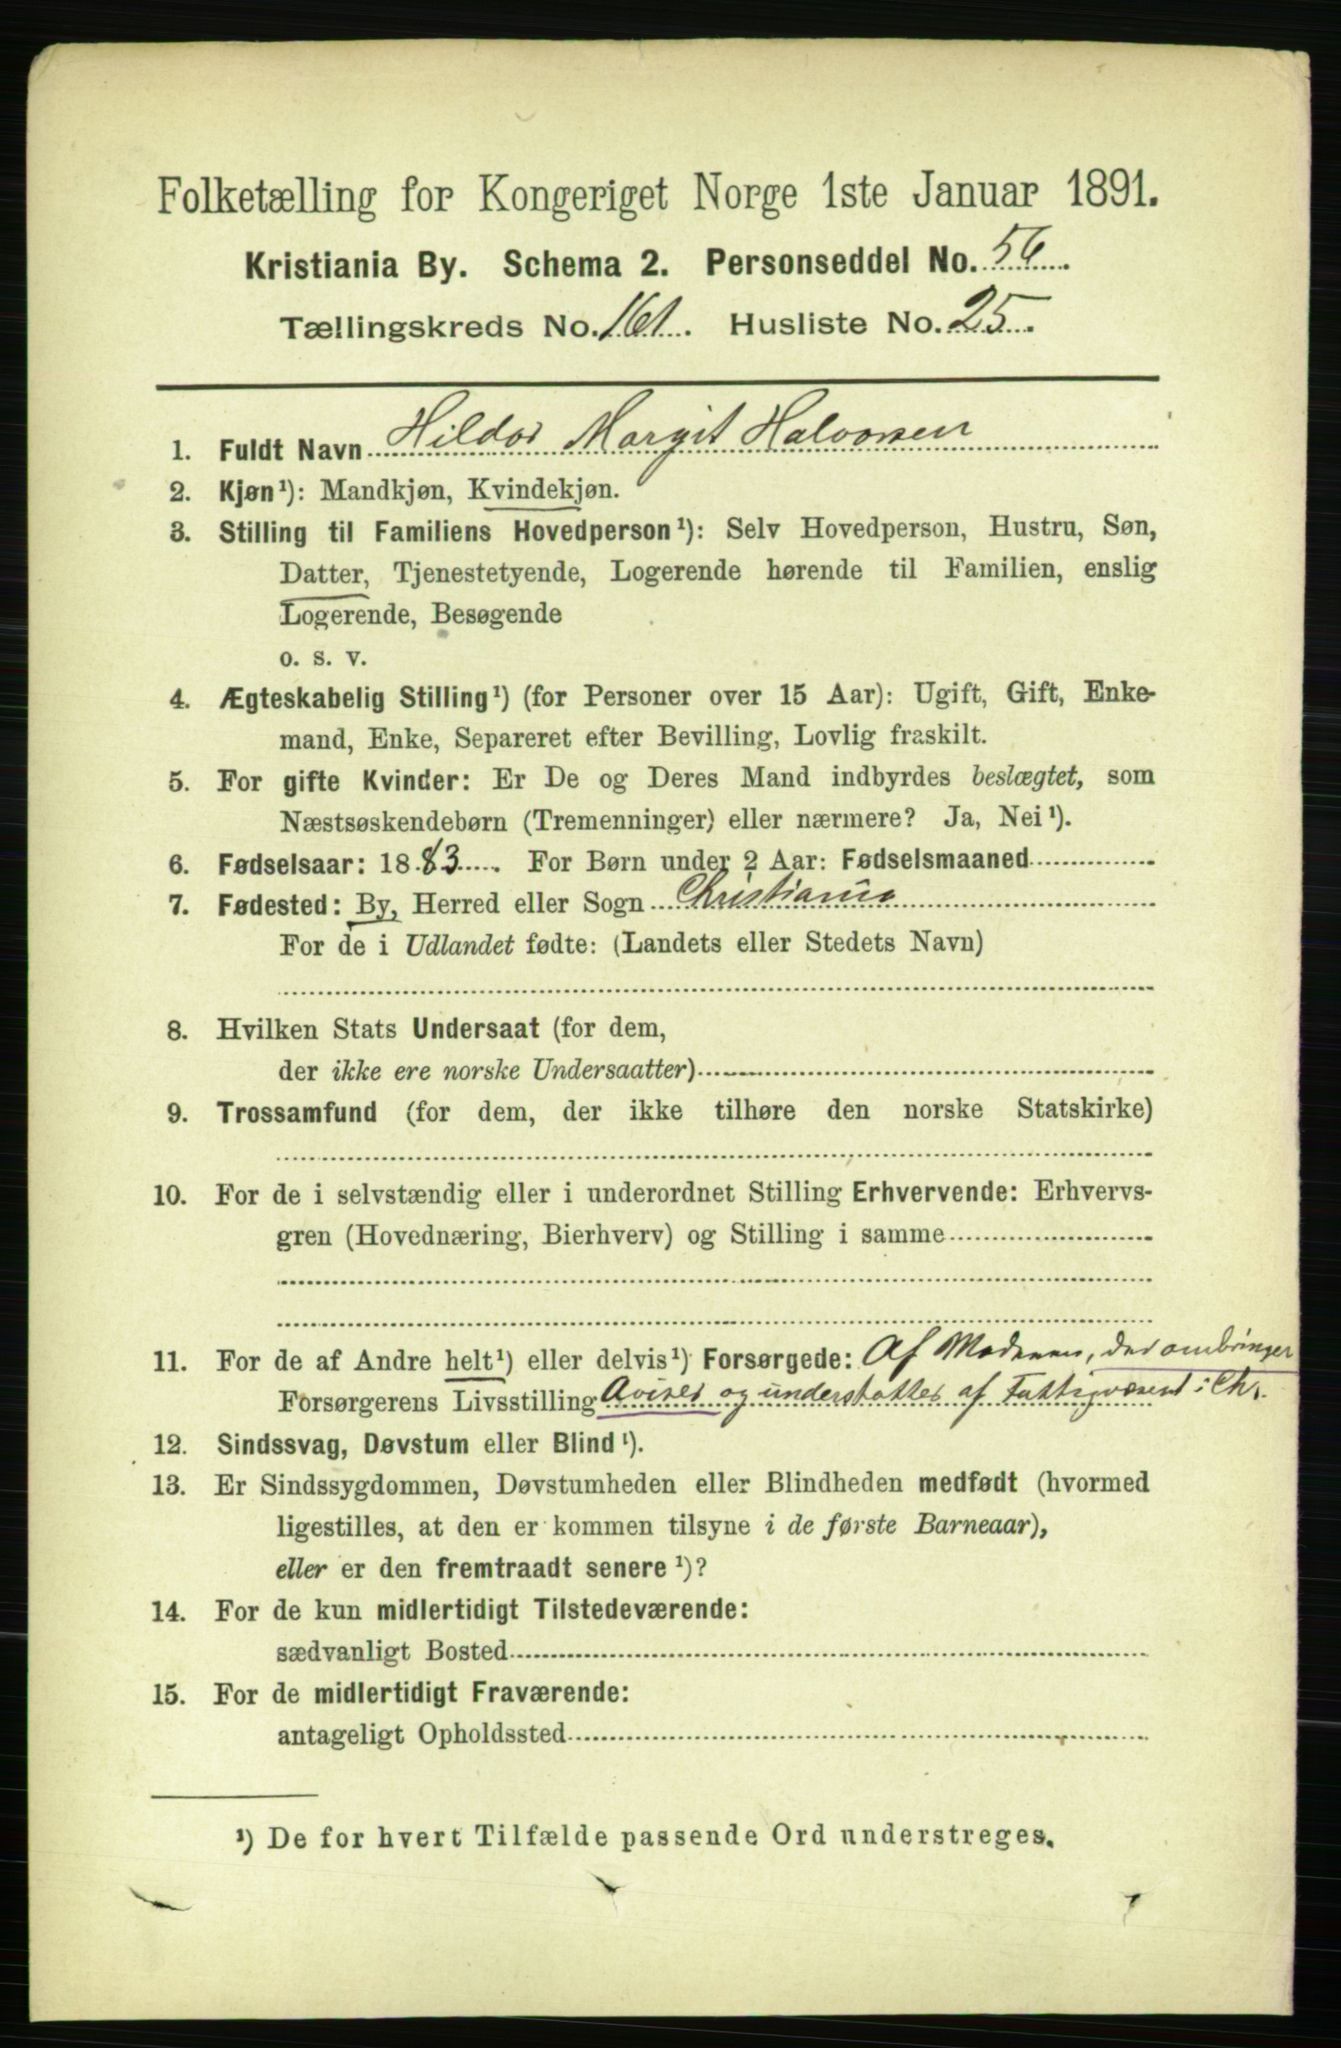 Folketælling for Kongeriget Norge 1ste Januar 1891.
Kristiania By. Schema 2. Personseddel No. 56
Tællingskreds No. 161. Husliste No. 25.
1. Fuldt Navn Hildor Margit Halvorsen
2. Kjøn¹): Mandkjøn, Kvindekjøn.
3. Stilling til Familiens Hovedperson¹): Selv Hovedperson, Hustru, Søn,
Datter, Tjenestetyende, Logerende hørende til Familien, enslig
Logerende, Besøgende
o. s. v.
4. Ægteskabelig Stilling¹) (for Personer over 15 Aar): Ugift, Gift, Enke-
mand, Enke, Separeret efter Bevilling, Lovlig fraskilt.
5. For gifte Kvinder: Er De og Deres Mand indbyrdes beslægtet, som
Næstsøskendebørn (Tremenninger) eller nærmere? Ja, Nei¹).
6. Fødselsaar: 1883. For Børn under 2 Aar: Fødselsmaaned
7. Fødested: By, Herred eller Sogn Christiania
For de i Udlandet fødte: (Landets eller Stedets Navn)
8. Hvilken Stats Undersaat (for dem,
der ikke ere norske Undersaatter)
9. Trossamfund (for dem, der ikke tilhøre den norske Statskirke)
10. For de i selvstændig eller i underordnet Stilling Erhvervende: Erhvervs-
gren (Hovednæring, Bierhverv) og Stilling i samme
11. For de af Andre helt¹) eller delvis¹) Forsørgede: Af Moderen, der ombringer
Forsørgerens Livsstilling Aviser og understøttes af Fattigvæsent i Chr.
12. Sindssvag, Døvstum eller Blind¹).
13. Er Sindssygdommen, Døvstumheden eller Blindheden medfødt (hvormed
ligestilles, at den er kommen tilsyne i de første Barneaar),
eller er den fremtraadt senere¹)?
14. For de kun midlertidigt Tilstedeværende:
sædvanligt Bosted
15. For de midlertidigt Fraværende:
antageligt Opholdssted
¹) De for hvert Tilfælde passende Ord understreges.